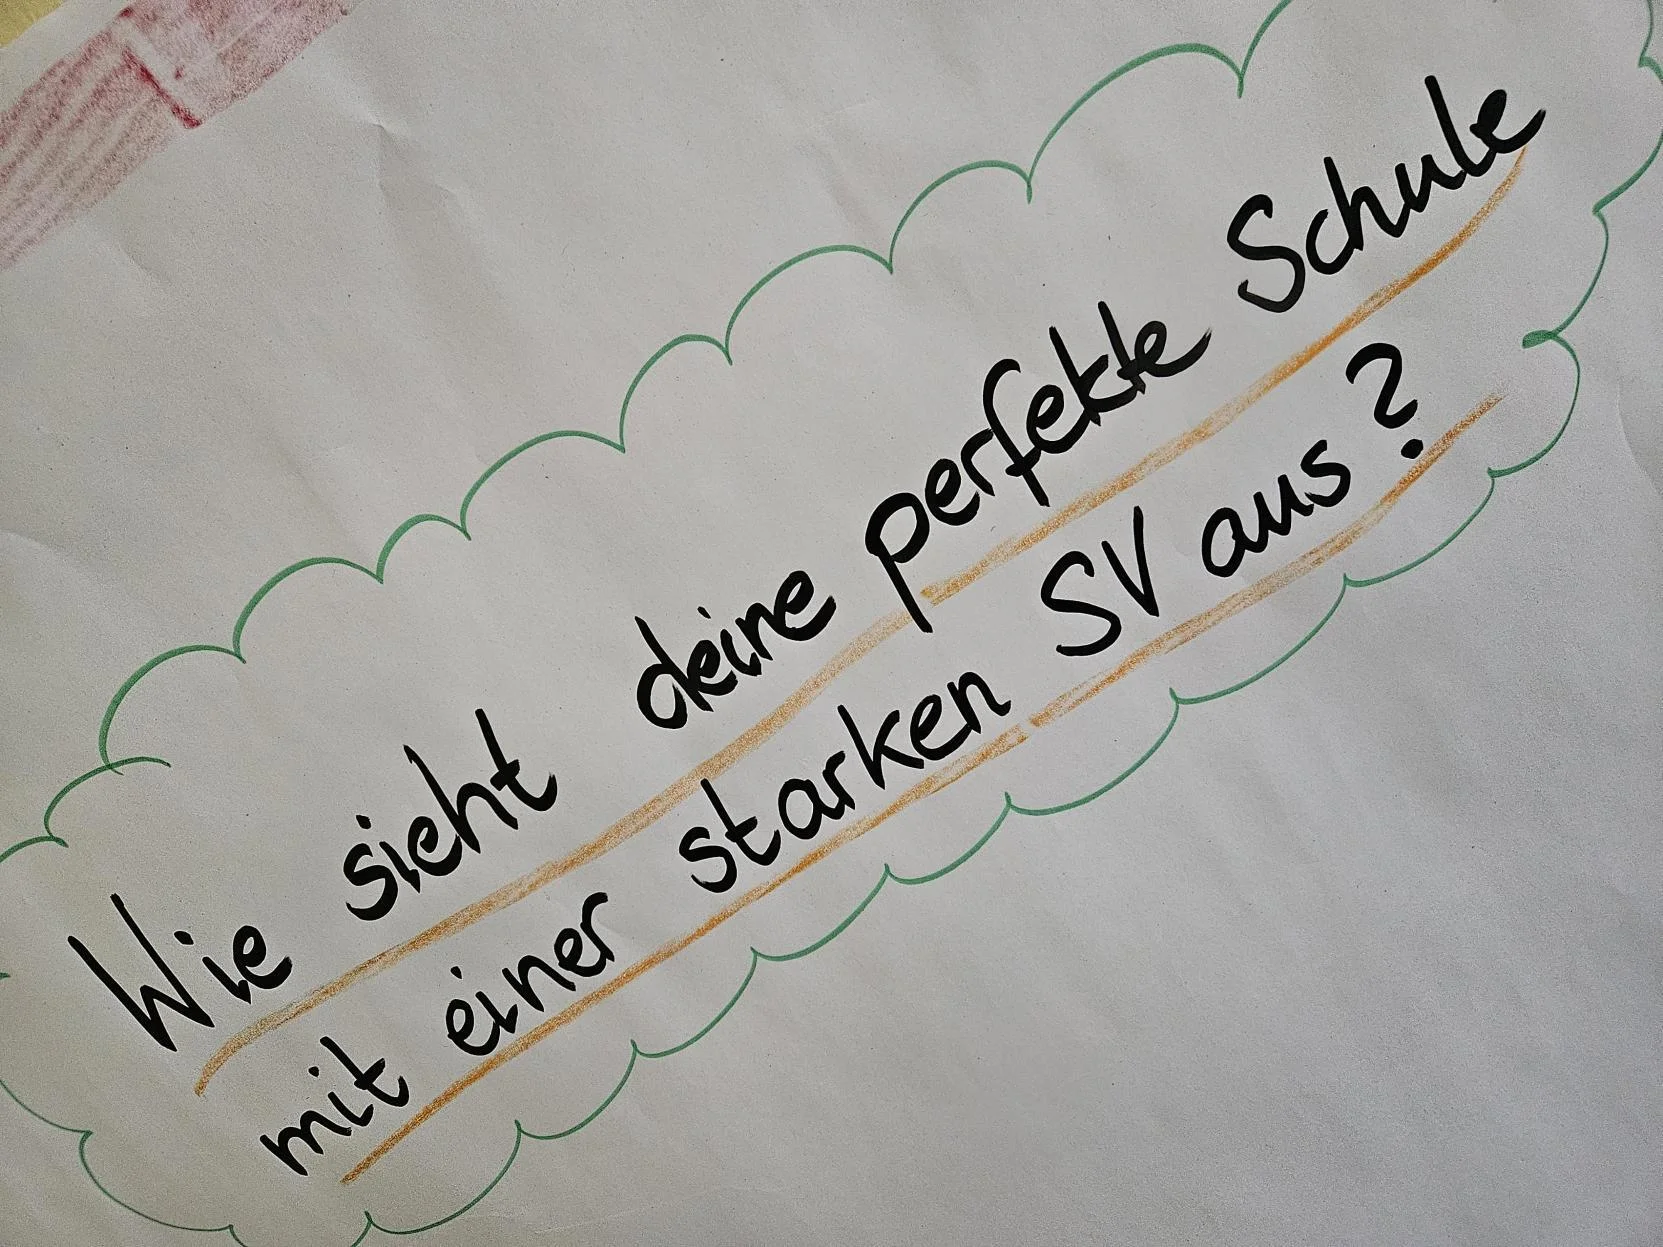 Wie sieht deine perfekte Schule
mit einer starken SV aus?